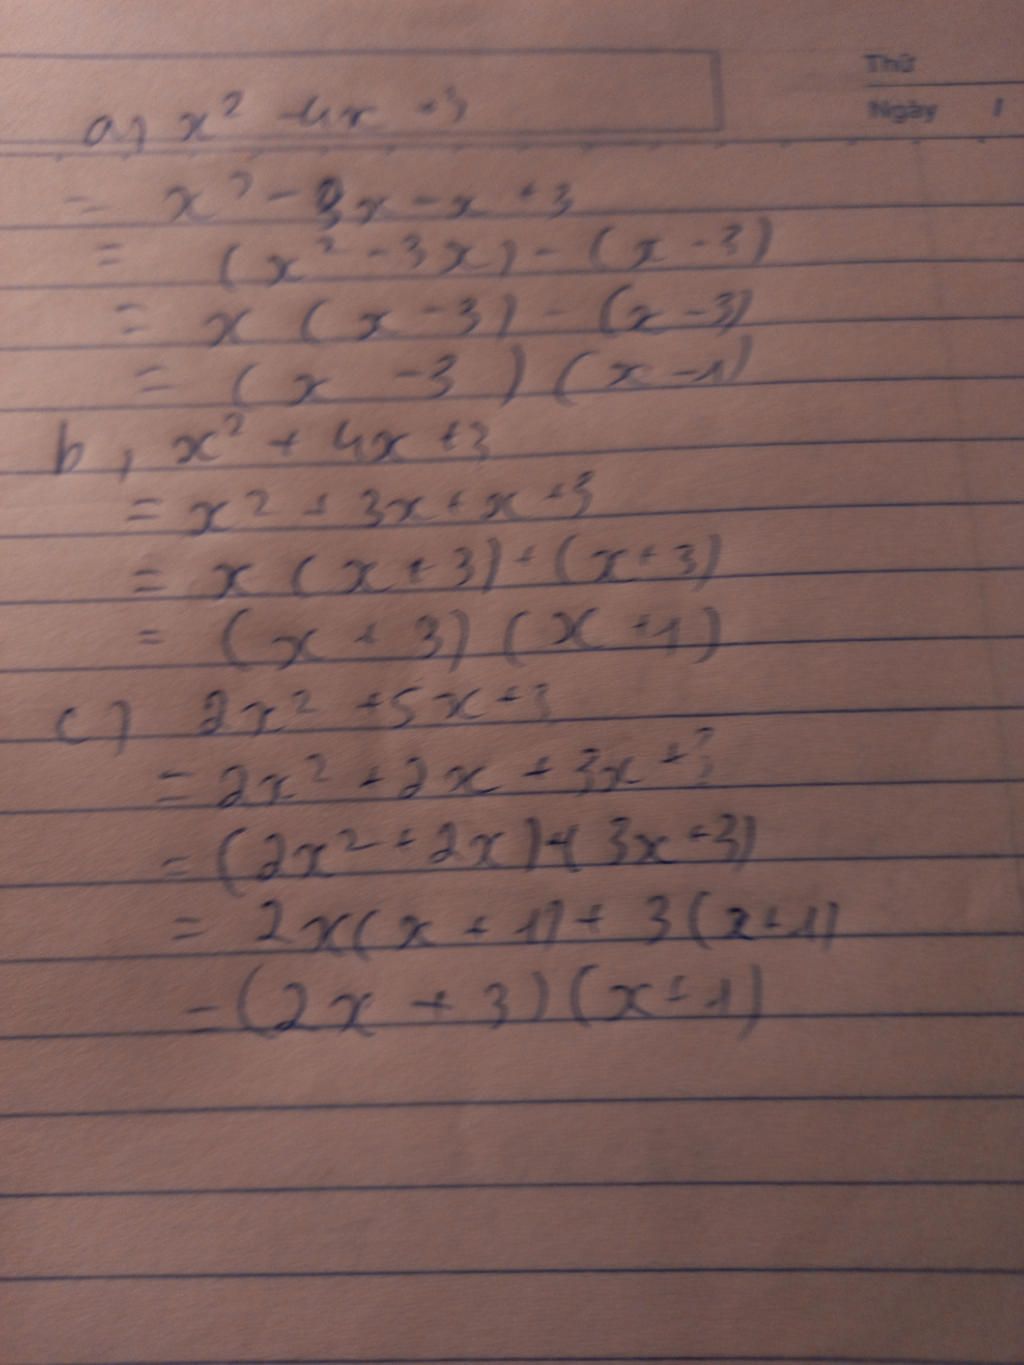 Thứ
Ngày
a) x² - 4x + 3
= x² - 3x - x + 3
= (x² - 3x) - (x - 3)
= x (x - 3) - (x - 3)
= (x - 3) (x - 1)
b, x² + 4x + 3
= x² + 3x + x + 3
= x (x + 3) + (x + 3)
= (x + 3) (x + 1)
c) 2x² + 5x + 3
= 2x² + 2x + 3x + 3
= (2x² + 2x) + (3x + 3)
= 2x(x + 1) + 3(x + 1)
= (2x + 3) (x + 1)